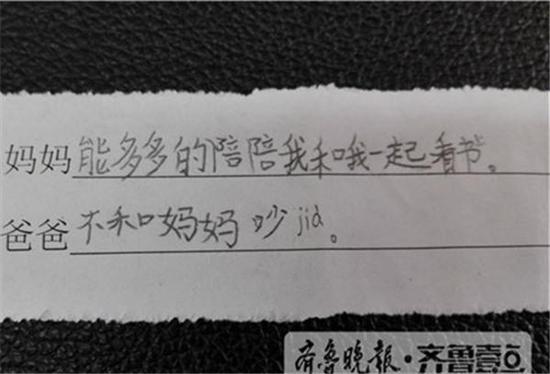 妈妈能多多的陪陪我和哦一起看书。
爸爸不和妈妈吵jia。
齐鲁晚报·齐鲁壹点